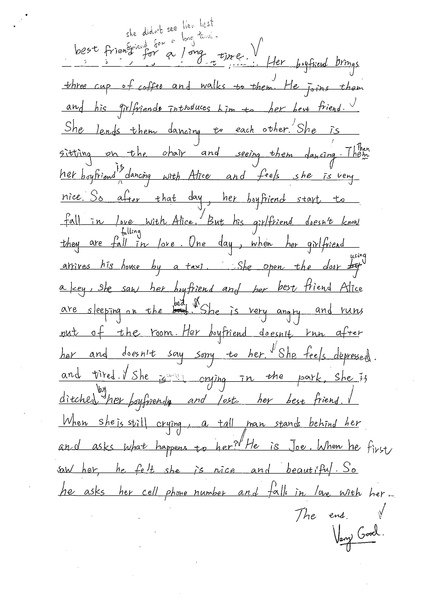 she didn't see her best
friend for a long time.
best friend for a long time.
Her boyfriend brings
three cup of coffee and walks to them. He joins them
and his girlfriends introduces him to her best friend.
She lends them dancing to each other. She is
sitting on the chair and seeing them dancing. Then
her boyfriend is dancing with Alice and feels she is very
nice. So after that day, her boyfriend start to
fall in love with Alice. But his girlfriend doesn't know
they are falling in love. One day, when her girlfriend
arrives his house by a taxi. She open the door using
a key, she saw her boyfriend and her best friend Alice
are sleeping on the bed. She is very angry and runs
out of the room. Her boyfriend doesn't run after
her and doesn't say sorry to her. She feels depressed
and tired. She is crying in the park. She is
ditched by her boyfriend and lost her best friend.
When she is still crying, a tall man stands behind her
and asks what happens to her? He is Joe. When he first
saw her, he felt she is nice and beautiful. So
he asks her cell phone number and falls in love with her..
The end.
Very Good.